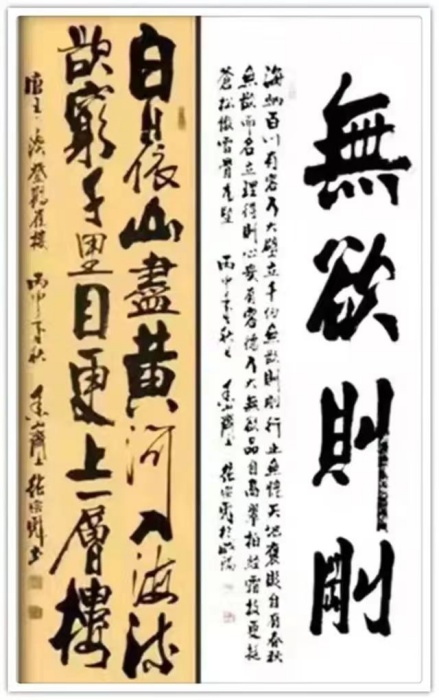 無欲則剛
海納百川有容乃大壁立千仞無欲則剛行止無愧天地褒貶自有春秋
無欲而名立理得則心安有容德乃大無欲品自高翠柏經霜枝更挺
蒼松傲雪骨尤堅 丙申
白日依山盡黃河入海流
欲窮千里目更上一層樓
唐王之渙登鸛雀樓 丙申